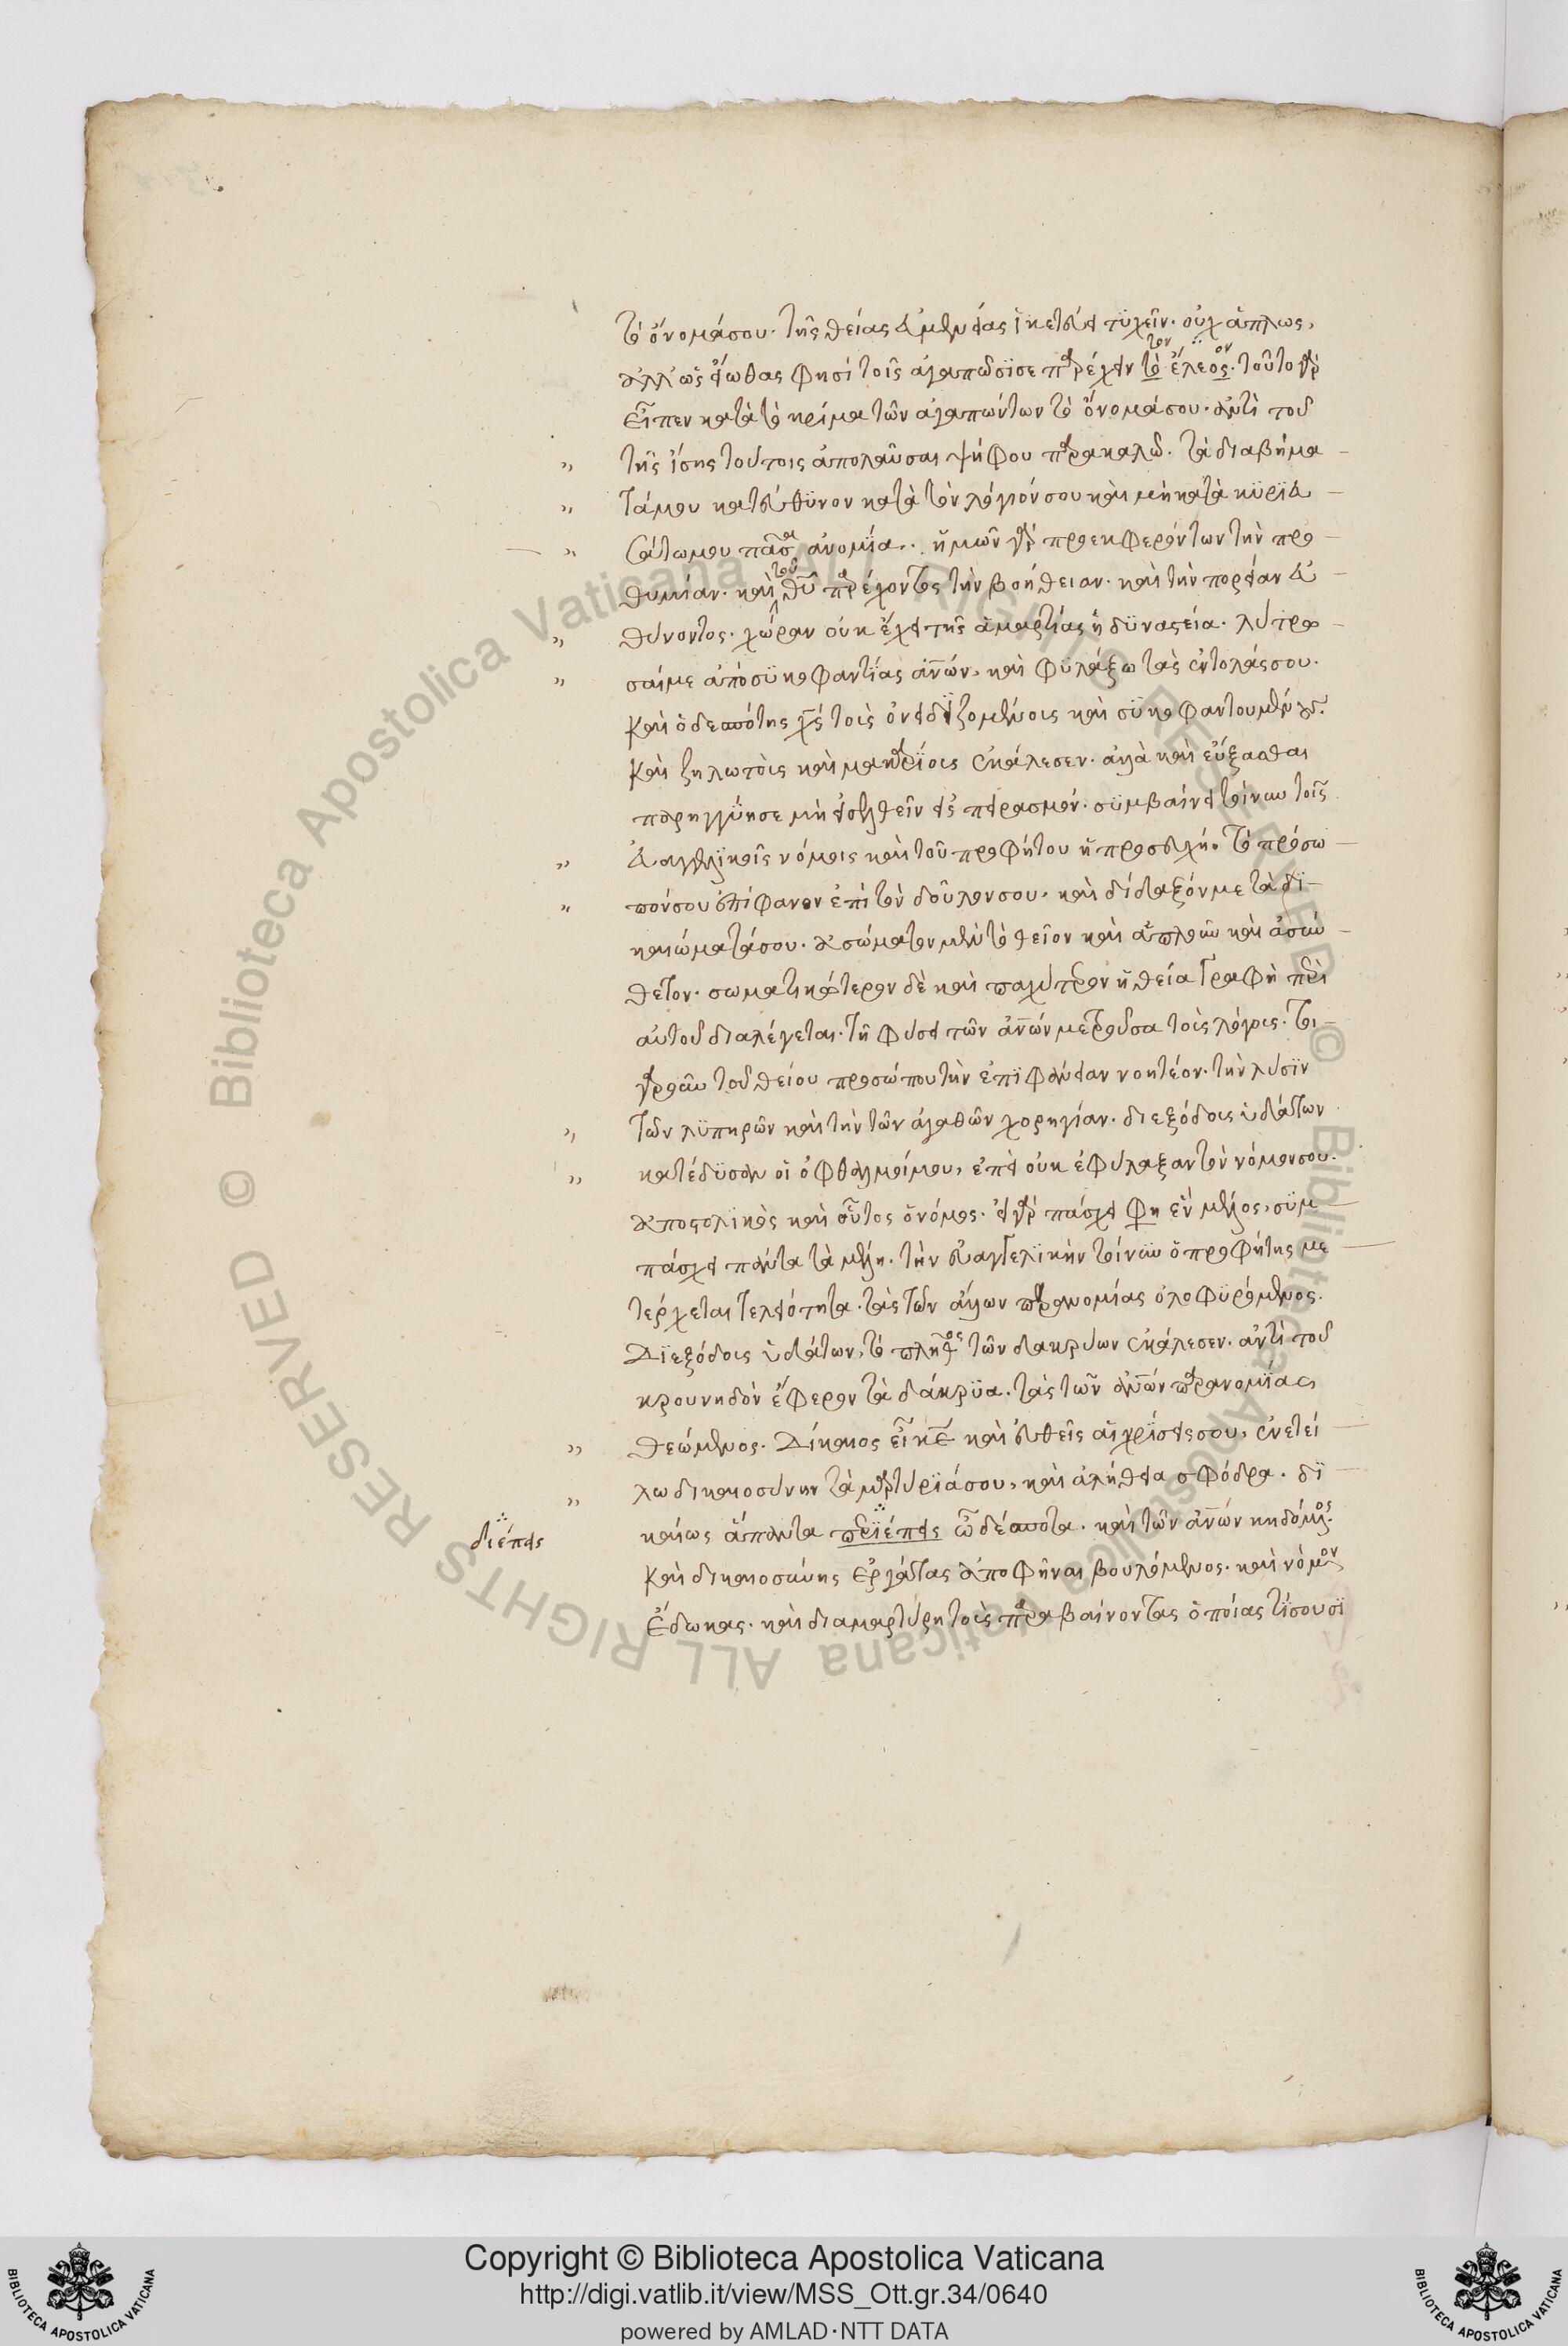 τὸ ὄνομά σου. τῆς θείας εὐμενείας ἱκετεύει τυχεῖν. οὐχ ἁπλῶς,
ἀλλ' ὡς εἴωθας φησὶ τοῖς ἀγαπῶσί σε παρέχειν τὸ ἔλεος. τοῦτο γὰρ
τὸν ον
εἶπεν κατὰ τὸ κρίμα τῶν ἀγαπώντων τὸ ὄνομά σου. ἀντὶ τοῦ
" τῆς ἴσης τούτοις ἀπολαῦσαι ψήφου παρακαλῶ. τὰ διαβήμα
" τά μου κατεύθυνον κατὰ τὸν λόγιόν σου καὶ μὴ κατὰ κυριευ
" σάτω μου πᾶσα ἀνομία. ἡμῶν γὰρ προεκφερόντων τὴν προ
θυμίαν. καὶ τοῦ θυ παρέχοντος τὴν βοήθειαν. καὶ τὴν πορείαν εὐ
" θύνοντος. χώραν οὐκ ἔχει τῆς ἁμαρτίας ἡ δυναστεία. λύτρω
" σαί με ἀπὸ συκοφαντίας ἀνῶν, καὶ φυλάξω τὰς ἐντολάς σου.
καὶ ὁ δεσπότης χς τοὺς ὀνειδιζομένους καὶ συκοφαντουμένους.
καὶ ζηλωτοὺς καὶ μακαρίους ἐκάλεσεν. ἀλλὰ καὶ εὔξασθαι
παρηγγύησε μὴ εἰσελθεῖν εἰς πειρασμόν. συμβαίνει τοίνυν τοῖς
" εὐαγγελικοῖς νόμοις καὶ τοῦ προφήτου ἡ προσευχή. τὸ πρόσω
" πόν σου ἐπίφανον ἐπὶ τὸν δοῦλον σου. καὶ δίδαξόν με τὰ δι
καιώματά σου. ἀσώματον μὲν τὸ θεῖον καὶ ἁπλοῦν καὶ ἀσύν
θετον. σωματικώτερον δὲ καὶ παχύτερον ἡ θεία γραφὴ περὶ
αὐτοῦ διαλέγεται. τῇ φύσει τῶν ἀνῶν μετροῦσα τοὺς λόγους. τοι
γαροῦν τοῦ θείου προσώπου τὴν ἐπιφάνειαν νοητέον. τὴν λύσιν
" τῶν λυπηρῶν καὶ τὴν τῶν ἀγαθῶν χορηγίαν. διεξόδους ὑδάτων
" κατέδυσαν οἱ ὀφθαλμοί μου, ἐπεὶ οὐκ ἐφύλαξαν τὸν νόμον σου.
ἀποστολικὸς καὶ οὗτος ὁ νόμος. εἰ γὰρ πάσχει φη ἓν μέλος, συμ
πάσχει πάντα τὰ μέλη. τὴν εὐαγγελικὴν τοίνυν ὁ προφήτης με
τέρχεται τελειότητα. τὰς τῶν ἄλλων παρανομίας ὀλοφυρόμενος.
Διεξόδους ὑδάτων, τὸ πλῆθος τῶν δακρύων ἐκάλεσεν. ἀντὶ τοῦ
κρουνηδὸν ἔφερον τὰ δάκρυα. τὰς τῶν ἀνῶν παρανομίας
" θεώμενος. Δίκαιος εἶ κε καὶ εὐθεῖς αἱ κρίσεις σου, ἐνετεί
" λω δικαιοσύνην τὰ μαρτύριά σου, καὶ ἀλήθεια σφόδρα. δι
διέπεις
καίως ἅπαντα περιέπεις ὦ δέσποτα. καὶ τῶν ἀνῶν κηδόμενος.
καὶ δικαιοσύνης ἐργάτας ἀποφῆναι βουλόμενος. καὶ νόμον
ἔδωκας. καὶ διαμαρτύρῃ τοὺς παραβαίνοντας ὁποίας τίσουσι
Copyright © Biblioteca Apostolica Vaticana
http://digi.vatlib.it/view/MSS_Ott.gr.34/0640
powered by AMLAD·NTT DATA
BIBLIOTECA APOSTOLICA VATICANA
BIBLIOTECA APOSTOLICA VATICANA
© Biblioteca Apostolica Vaticana ALL RIGHTS RESERVED
© Biblioteca Apostolica Vaticana ALL RIGHTS RESERVED